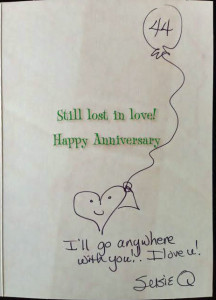 44
Still lost in love!
Happy Anniversary
I'll go anywhere
with you!.. I love u!
Susie Q